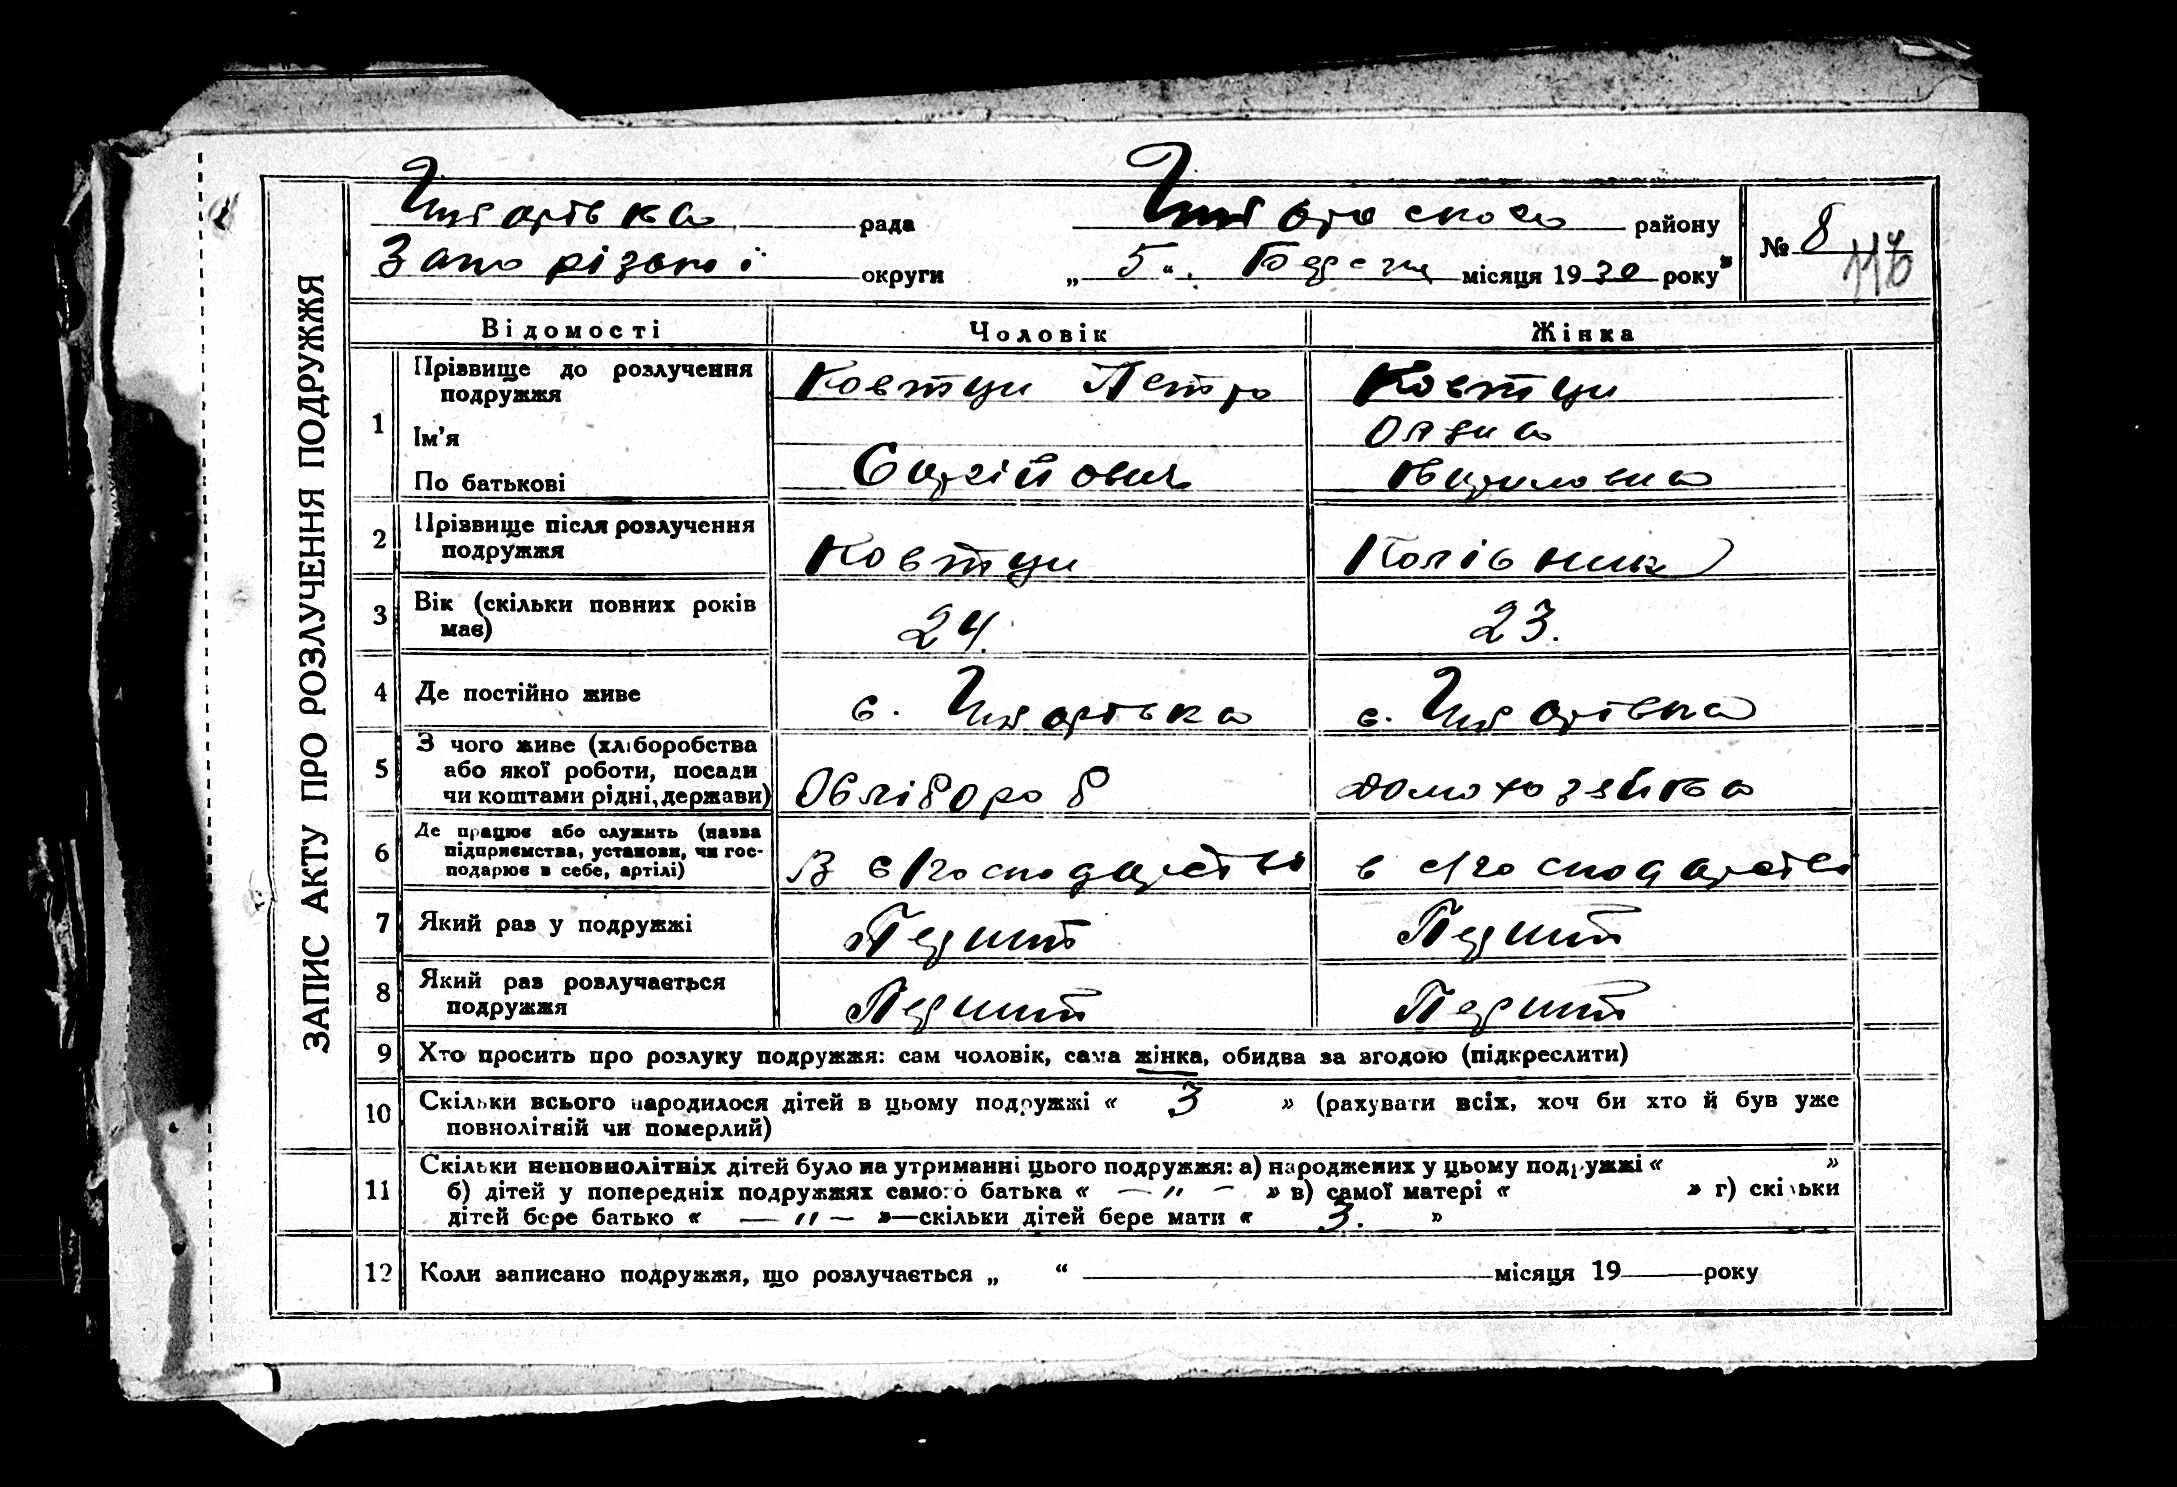 ЗАПИС АКТУ ПРО РОЗЛУЧЕННЯ ПОДРУЖЖЯ
рада району № 8
116
Запорізької округи „ 5 “ місяця 1930 року
Відомості Чоловік Жінка
1 Прізвище до розлучення подружжя Ковтун Петро Ковтун
Ім’я
По батькові Сергійович Кириловна
2 Прізвище після розлучення подружжя Ковтун Колісник
3 Вік (скільки повних років має) 24. 23.
4 Де постійно живе с. с.
5 З чого живе (хліборобства або якої роботи, посади чи коштами рідні, держави) Хлібороб домохозяйка
6 Де працює або служить (назва підприємства, установи, чи господарює в себе, артілі) В с/господарстві в с/господарстві
7 Який раз у подружжі Перший Перший
8 Який раз розлучається подружжя Перший Перший
9 Хто просить про розлуку подружжя: сам чоловік, сама жінка, обидва за згодою (підкреслити)
10 Скільки всього народилося дітей в цьому подружжі « 3 » (рахувати всіх, хоч би хто й був уже
повнолітній чи померлий)
11 Скільки неповнолітніх дітей було на утриманні цього подружжя: а) народжених у цьому подружжі « »
б) дітей у попередніх подружжях самого батька « — „ — » в) самої матері « » г) скільки
дітей бере батько « — „ — »—скільки дітей бере мати « 3. »
12 Коли записано подружжя, що розлучається „ “ місяця 19 року